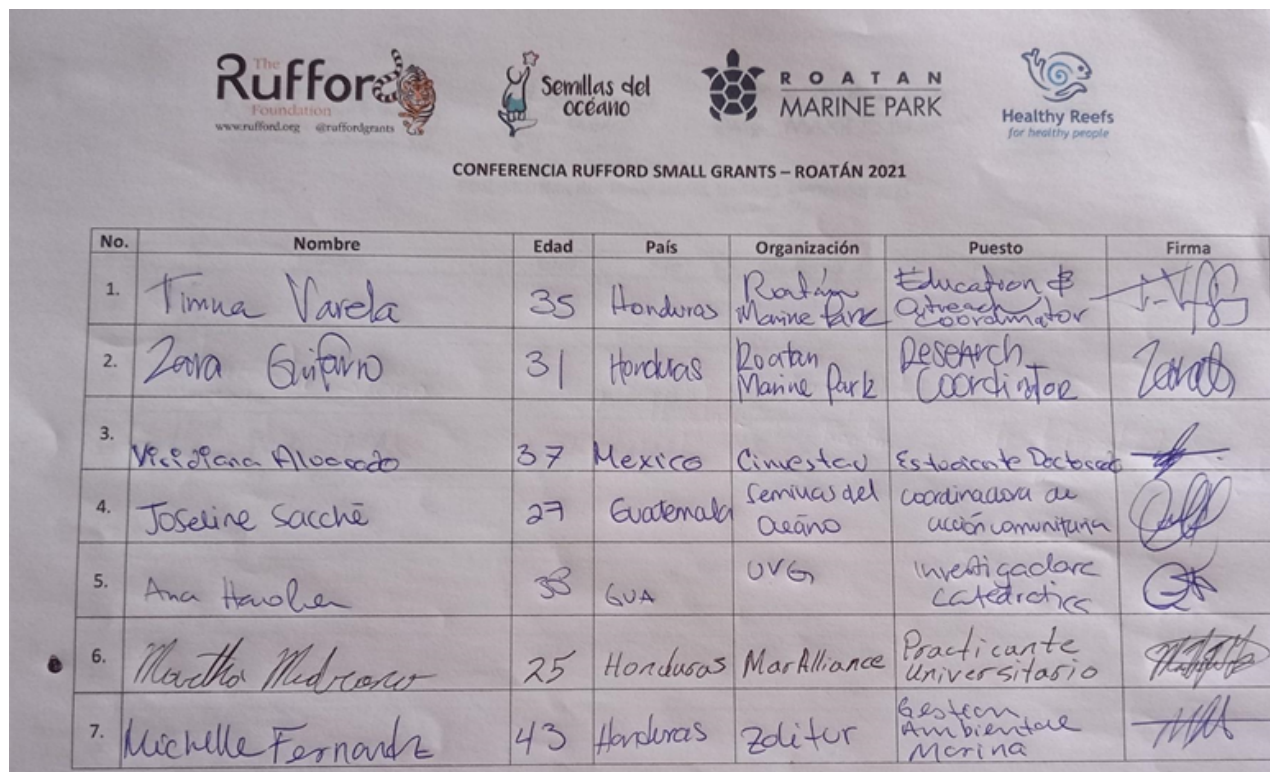 The
Rufford
Foundation
www.rufford.org @ruffordgrants
Semillas del
océano
ROATAN
MARINE PARK
Healthy Reefs
for healthy people
CONFERENCIA RUFFORD SMALL GRANTS – ROATÁN 2021
No. Nombre Edad País Organización Puesto Firma
1. Timna Varela 35 Honduras Roatán Marine Park Education & Outreach Coordinator
2. Zara Guifarro 31 Honduras Roatan Marine Park Research Coordinator
3. Viridiana Alvarado 37 Mexico Cinvestav Estudiante Doctorado
4. Joseline Sacchê 27 Guatemala Semillas del Océano coordinadora de acción comunitaria
5. Ana 38 GUA UVG Investigadora catedrática
6. Martha Medrano 25 Honduras MarAlliance Practicante Universitario
7. Michelle Fernandz 43 Honduras Zolitur Gestion Ambiental Marina